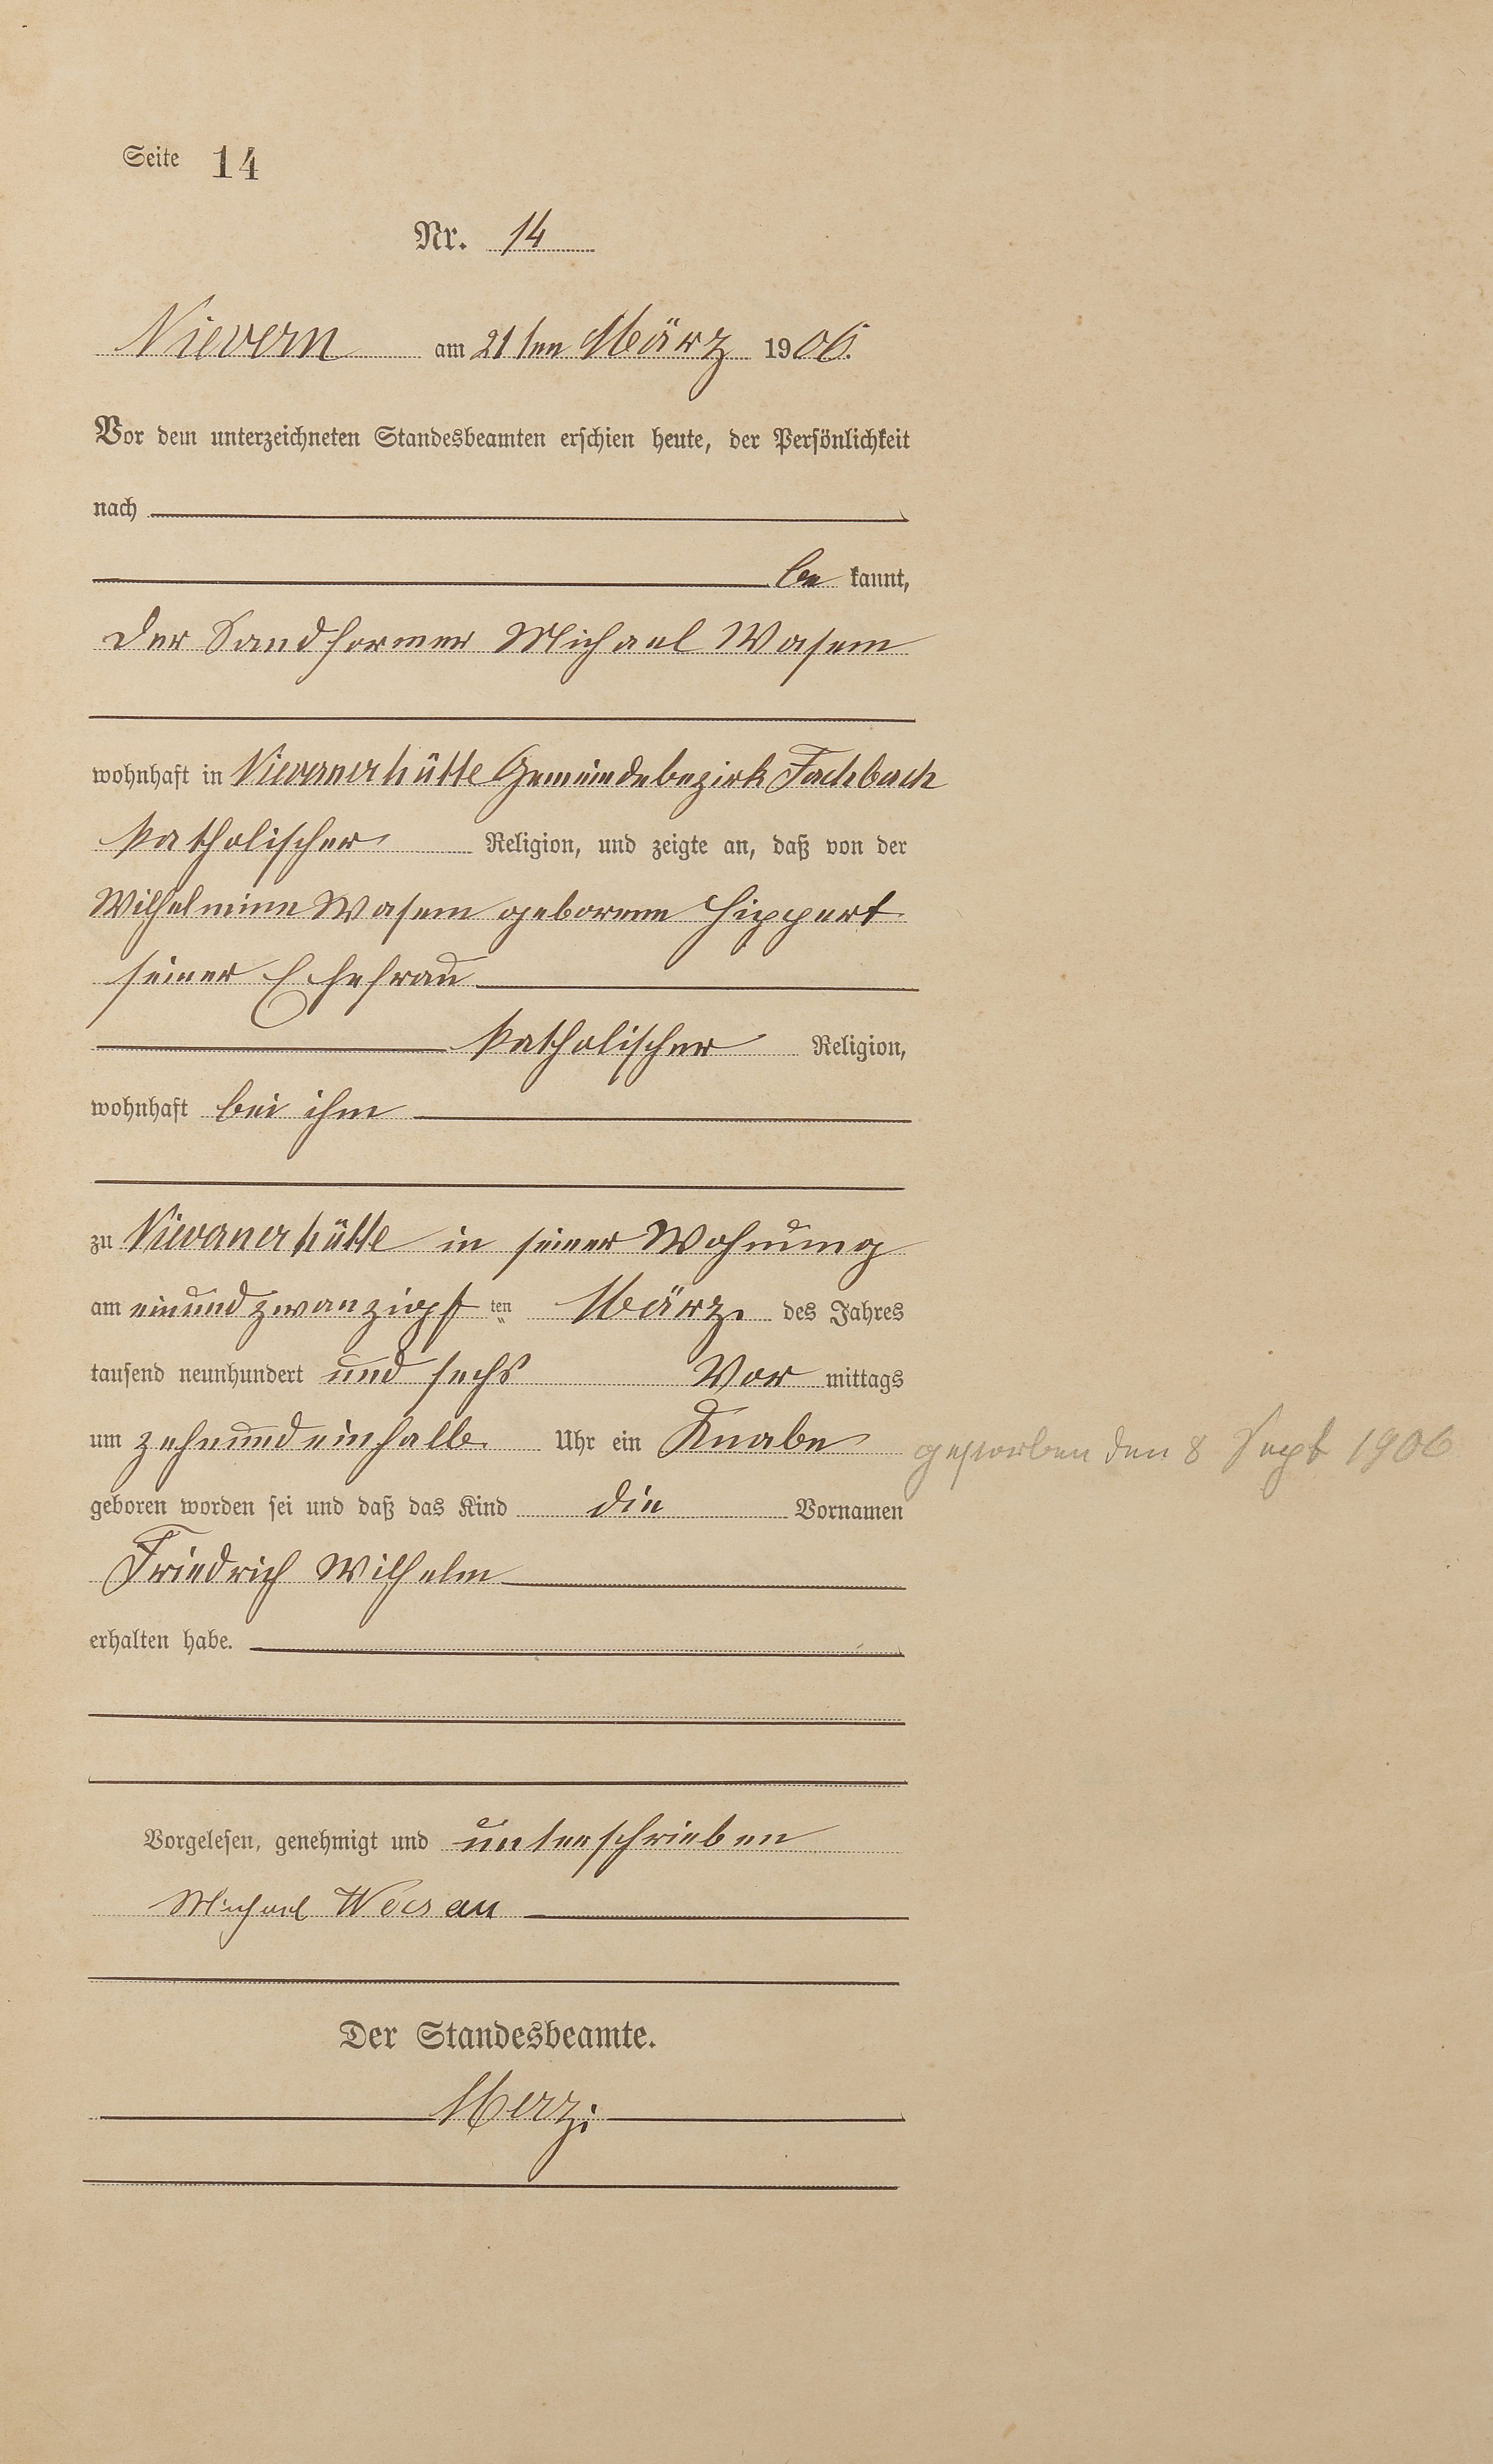 Seite 14
Nr. 14
Nievern am 21ten März 1906.
Vor dem unterzeichneten Standesbeamten erschien heute, der Persönlichkeit
nach
be kannt,
der Sandformer Michael Wasem
wohnhaft in Nievernerhütte Gemeindebezirk Fachbach
katholischer Religion, und zeigte an, daß von der
Wilhelmine Wasem geborenen Hippert
seiner Ehefrau
katholischer Religion,
wohnhaft bei ihm
zu Nievernerhütte in seiner Wohnung
am einundzwanzigst ten März des Jahres
tausend neunhundert und sechs Vor mittags
um zehnundeinhalb Uhr ein Knabe
gestorben den 8 Sept 1906
geboren worden sei und daß das Kind die Vornamen
Friedrich Wilhelm
erhalten habe.
Vorgelesen, genehmigt und unterschrieben
Michael
Der Standesbeamte.
Merz